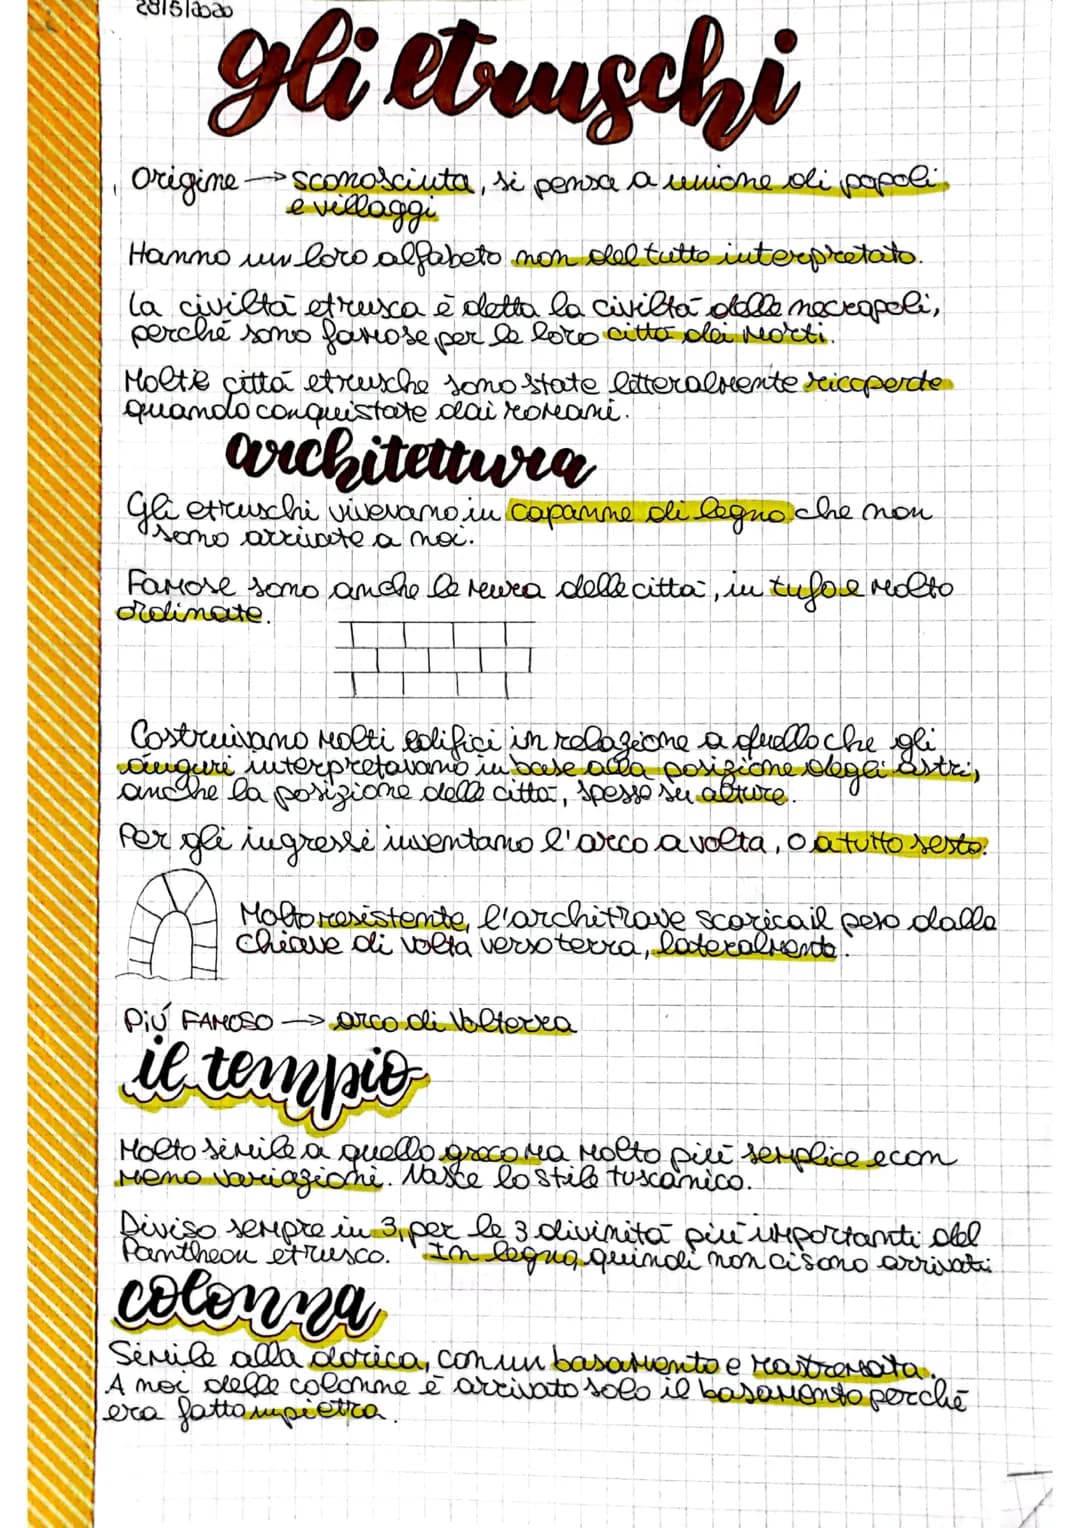 28/5/2020
gli etruschi
Origine → sconosciuta, si pensa a unione di popoli
e villaggi
Hanno un loro alfabeto non del tutto interpretato.
La civiltà etrusca è detta la civiltà delle necropoli,
perché sono famose per le loro città dei morti.
Molte città etrusche sono state litteralmente ricoperte
quando conquistate dai romani.
architettura
Gli etruschi vivevano in capanne di legno che non
sono arrivate a noi.
Famose sono anche le mura delle città, in tufo e molto
ordinate.
Costruivano molti edifici in relazione a quello che gli
auguri interpretavano in base alla posizione degli astri,
anche la posizione delle città, spesso su alture.
Per gli ingressi inventano l'arco a volta, o a tutto sesto.
Molto resistente, l'architrave scarica il peso dalla
chiave di volta verso terra, lateralmente.
PIÚ FAMOSO → arco di Volterra
il tempio
Molto simile a quello greco ma molto più semplice e con
meno variazioni. Nasce lo stile tuscanico.
Diviso sempre in 3, per le 3 divinità più importanti del
Pantheon etrusco. In legno, quindi non ci sono arrivati
colonna
Simile alla dorica, con un basamento e rastremata.
A noi delle colonne è arrivato solo il basamento perché
era fatto in pietra.